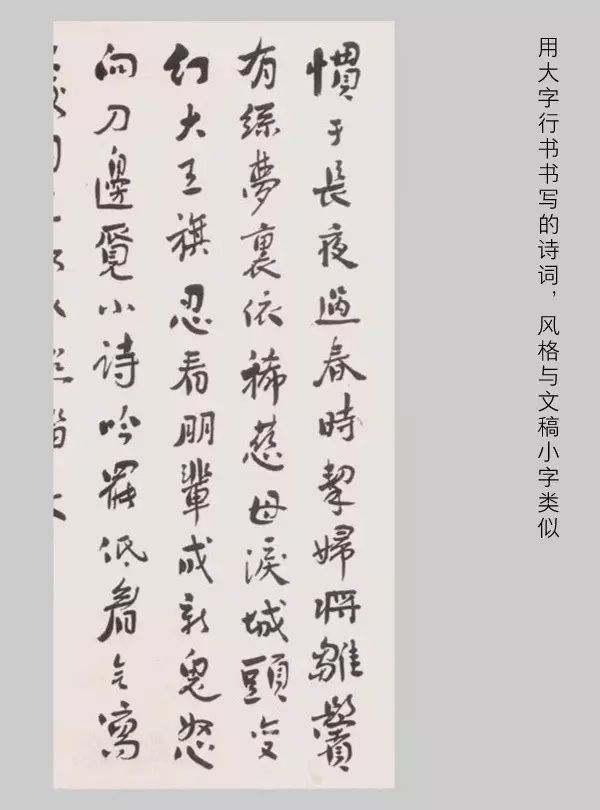 用大字行书书写的诗词，风格与文稿小字类似
慣于長夜過春時挈婦將雛鬢
有絲夢裏依稀慈母淚城頭變
幻大王旗忍看朋輩成新鬼怒
向刀邊覓小詩吟罷低眉無寫